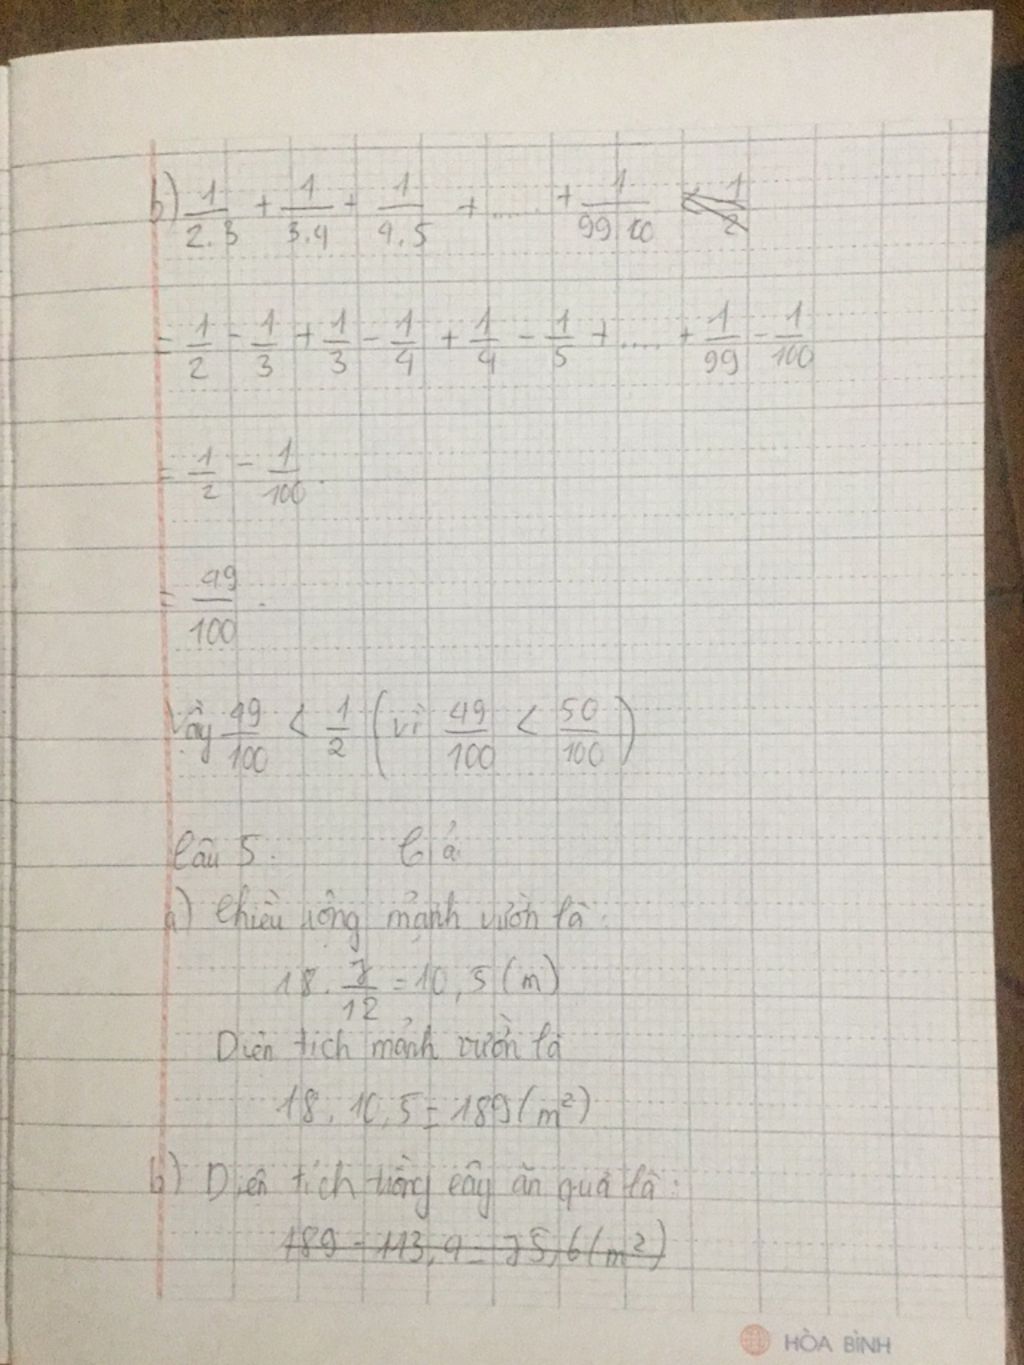 b) 1/2.3 + 1/3.4 + 1/4.5 + ..... + 1/99.100
= 1/2 - 1/3 + 1/3 - 1/4 + 1/4 - 1/5 + ..... + 1/99 - 1/100
= 1/2 - 1/100
= 49/100
Vậy 49/100 < 1/2 (vì 49/100 < 50/100)
Câu 5. Giải
a) Chiều rộng mảnh vườn là:
18. 7/12 = 10,5 (m)
Diện tích mảnh vườn là
18. 10,5 = 189 (m²)
b) Diện tích trồng cây ăn quả là:
189 - 113,4 = 75,6 (m²)
HÒA BÌNH